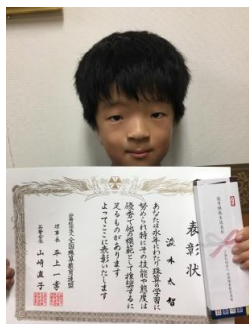 表彰状
淡木太智
あなたは永年にわたり珠算の学習に
努められ特にその技能や態度は
優秀で他の模範として推奨するに
足るものがあります
よってここに表彰いたします
公益社団法人 全国珠算教育連盟
理事長 平上一孝
山崎直子